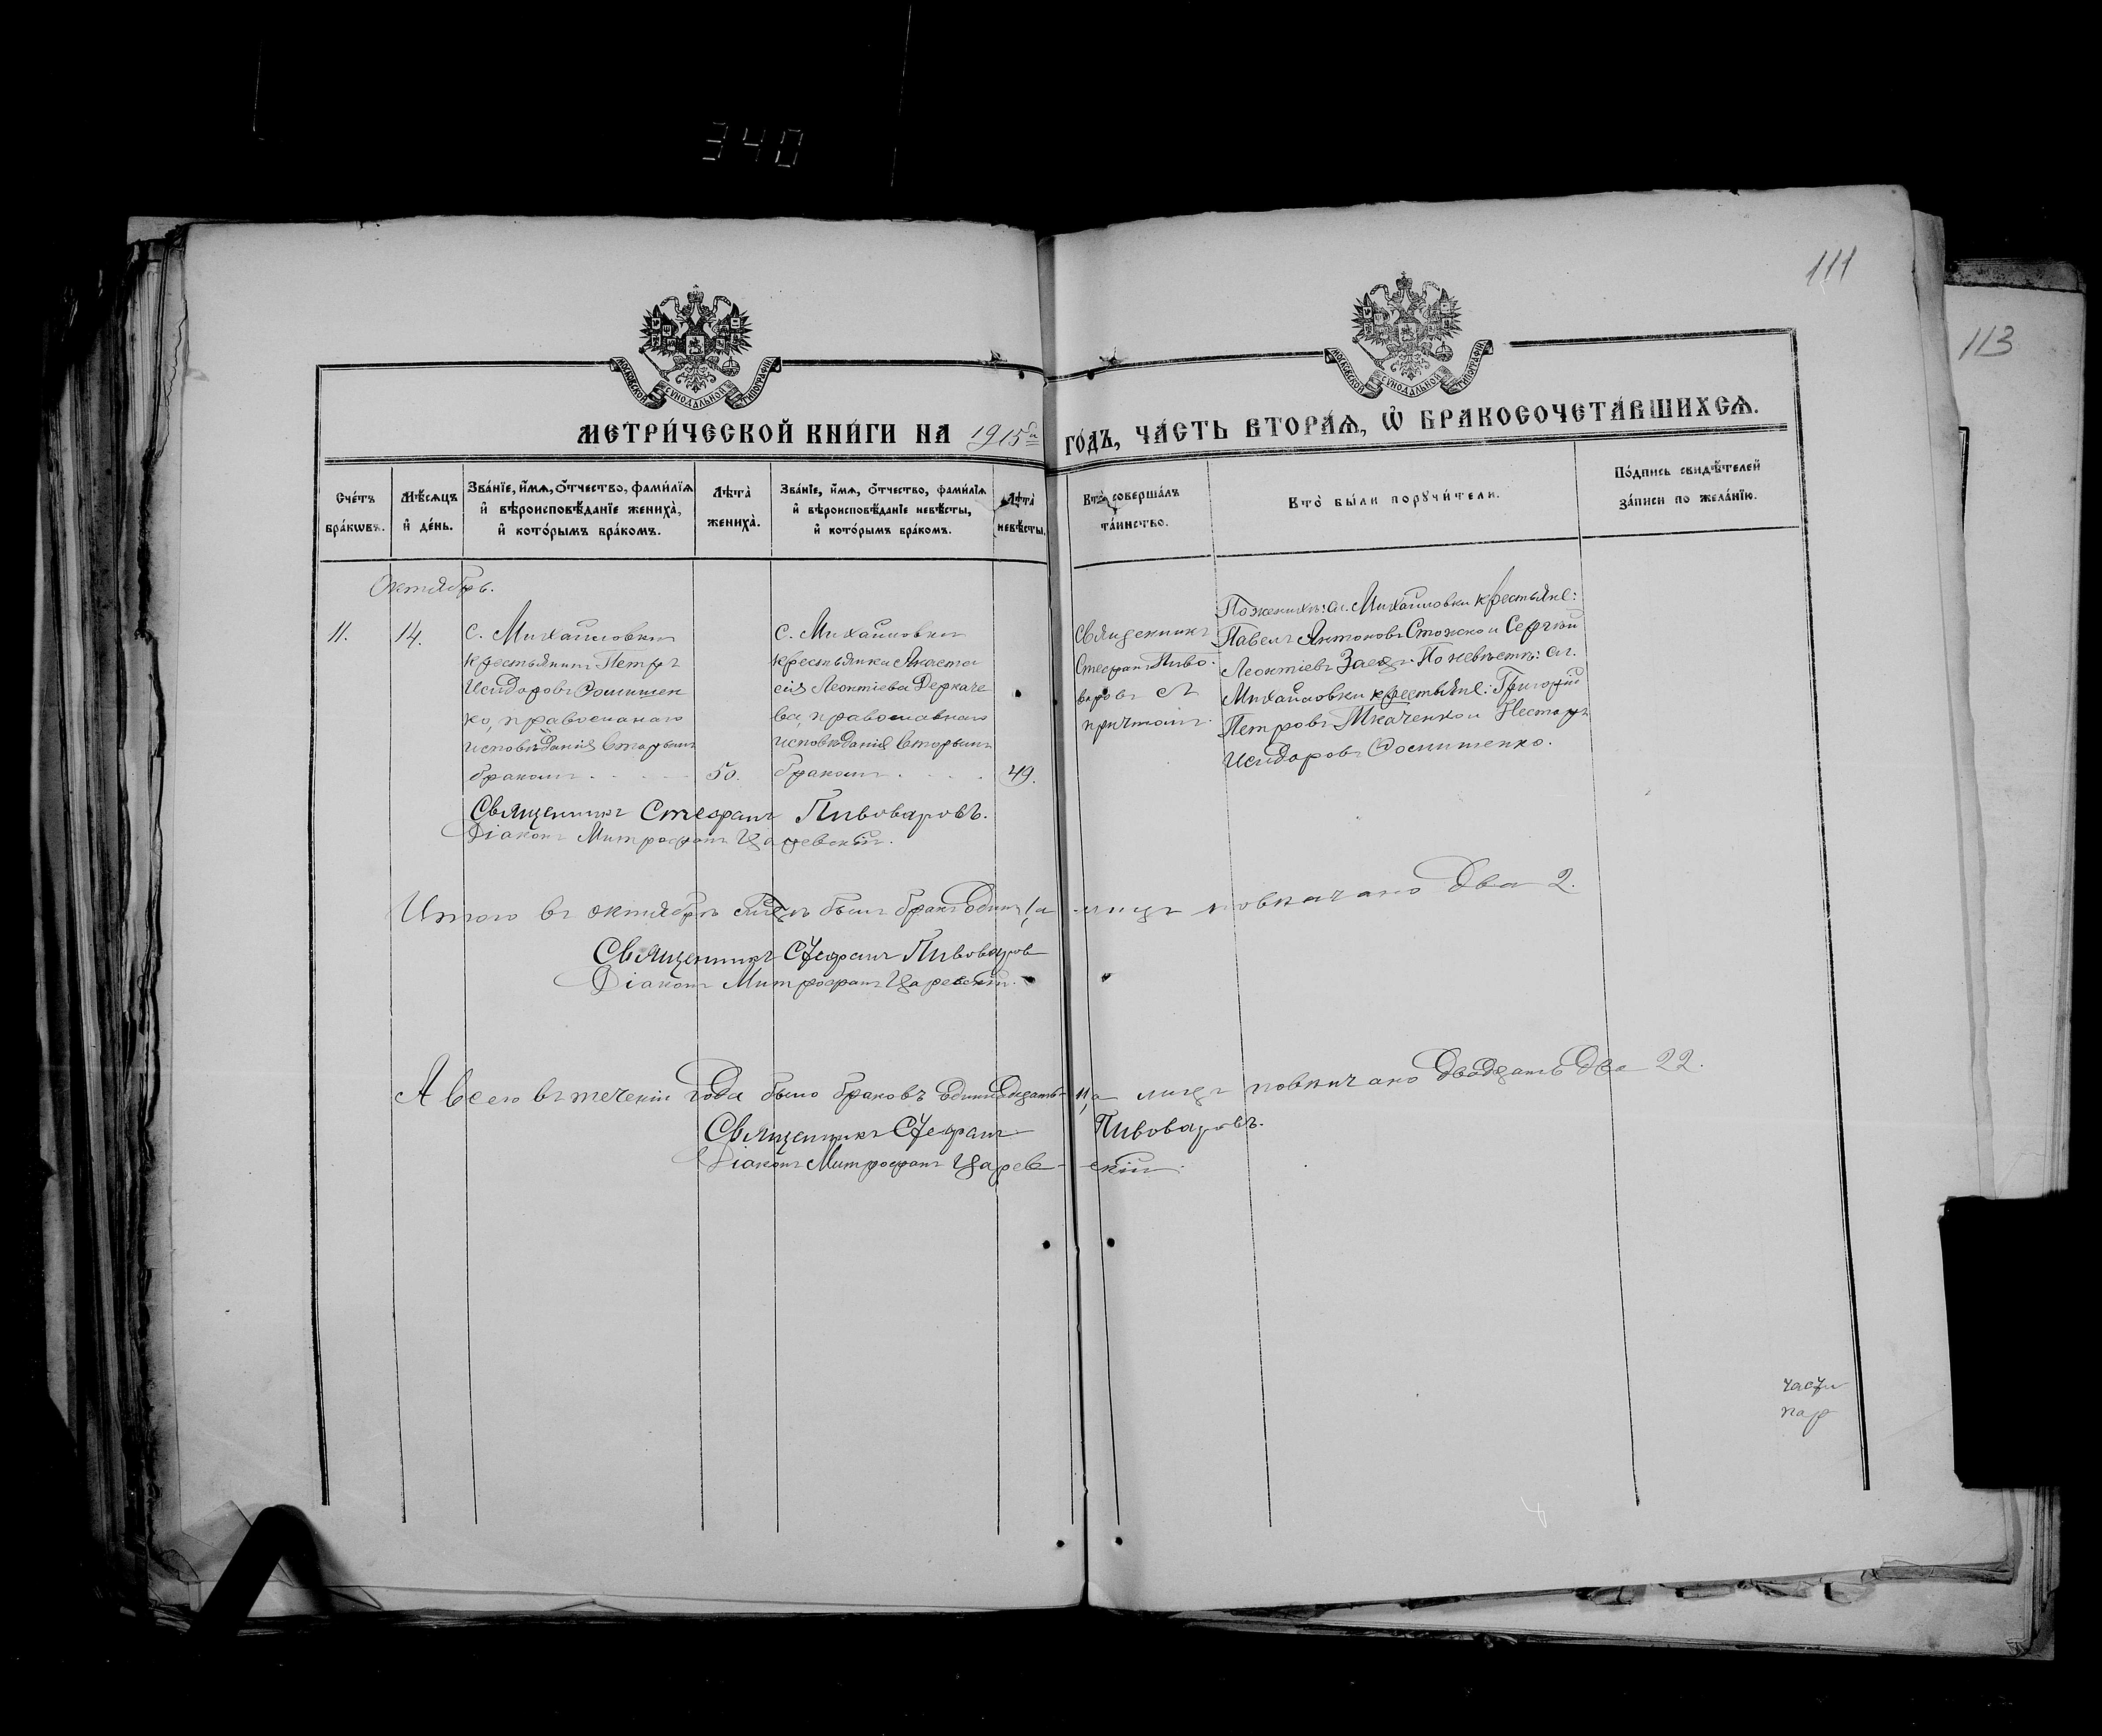 340
111
113
МОСКОВСКОЙ СѴНОДАЛЬНОЙ ТИПОГРАФІИ
МОСКОВСКОЙ СѴНОДАЛЬНОЙ ТИПОГРАФІИ
МЕТРИ́ЧЕСКОЙ КНИ́ГИ НА 1915й ГО́ДЪ, ЧА́СТЬ ВТОРА́Ѧ, Ѽ БРАКОСОЧЕТА́ВШИХСѦ.
Сче́тъ бра́кѡвъ.
Мѣ́сѧцъ и҆ де́нь.
Зва́нїе, и҆́мѧ, ѻ҆́тчество, фами́лїѧ и҆ вѣроисповѣ́данїе жениха̀, и҆ кото́рымъ бра́комъ.
Лѣ́та жениха̀.
Зва́нїе, и҆́мѧ, ѻ҆́тчество, фами́лїѧ и҆ вѣроисповѣ́данїе невѣ́сты, и҆ кото́рымъ бра́комъ.
Лѣ́та невѣ́сты.
Кто̀ соверша́лъ та́инство.
Кто̀ бы́ли порꙋчи́тели.
По́дпись свидѣ́телей за́писи по жела́нїю.
Октябрь.
11.
14.
с. Михайловки
крестьянинъ Петръ
Исидоровъ Фомишен
ко, православнаго
исповѣданія вторымъ
бракомъ
50.
с. Михайловки
крестьянка Анаста
сія Леонтіева Деркаче
ва, православнаго
исповѣданія вторымъ
бракомъ
49.
Священникъ
Стефанъ Пиво-
варовъ съ
причтомъ.
По женихѣ: сл. Михайловки крестьяне:
Павелъ Антоновъ Стожко и Сергѣй
Леонтіевъ Заецъ. По невѣстѣ: сл.
Михайловки крестьяне: Григорій
Петровъ Ткаченко и Несторъ
Исидоровъ Фомишенко.
Священникъ Стефанъ Пивоваровъ.
Діаконъ Митрофанъ Царевскій.
Итого въ октябрѣ мѣсяцѣ былъ бракъ одинъ, 1, а лицъ повѣнчано два 2.
Священникъ Стефанъ Пивоваров
Діаконъ Митрофанъ Царевскій.
А всего въ теченіи года было браковъ одиннадцать 11, а лицъ повѣнчано двадцать два 22.
Священникъ Стефанъ Пивоваровъ.
Діаконъ Митрофанъ Царев-скій.
части